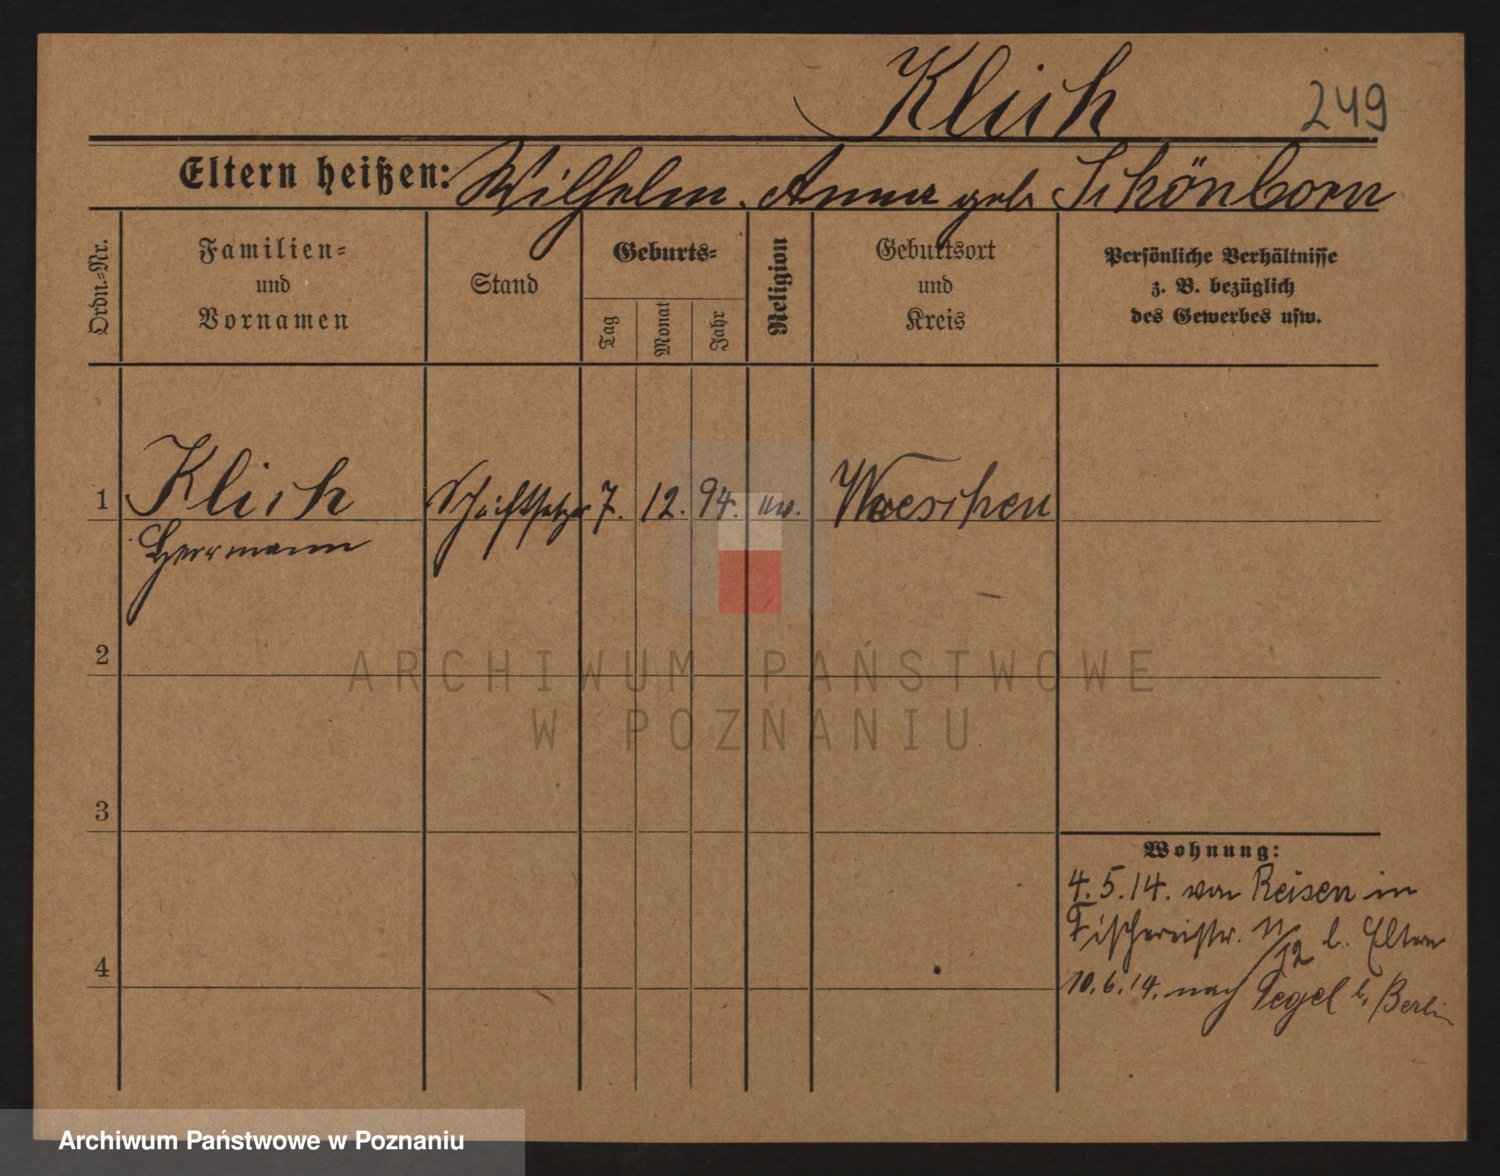 Klich 249
Eltern heißen: Wilhelm. Anna geb Schönborn
Ordn.=Nr.
Familien=
und
Vornamen
Stand
Geburts=
Tag
Monat
Jahr
Religion
Geburtsort
und
Kreis
Persönliche Verhältnisse
z. B. bezüglich
des Gewerbes usw.
1 Klich Schriftsetzer 7. 12. 94. ev.
Herrmann
2
3
4
Wohnung:
4.5.14. von Reisen in
Fischereistr. 11/12 b. Eltern
10.6.14. nach Tegel b. Berlin
ARCHIWUM PAŃSTWOWE
W POZNANIU
Archiwum Państwowe w Poznaniu